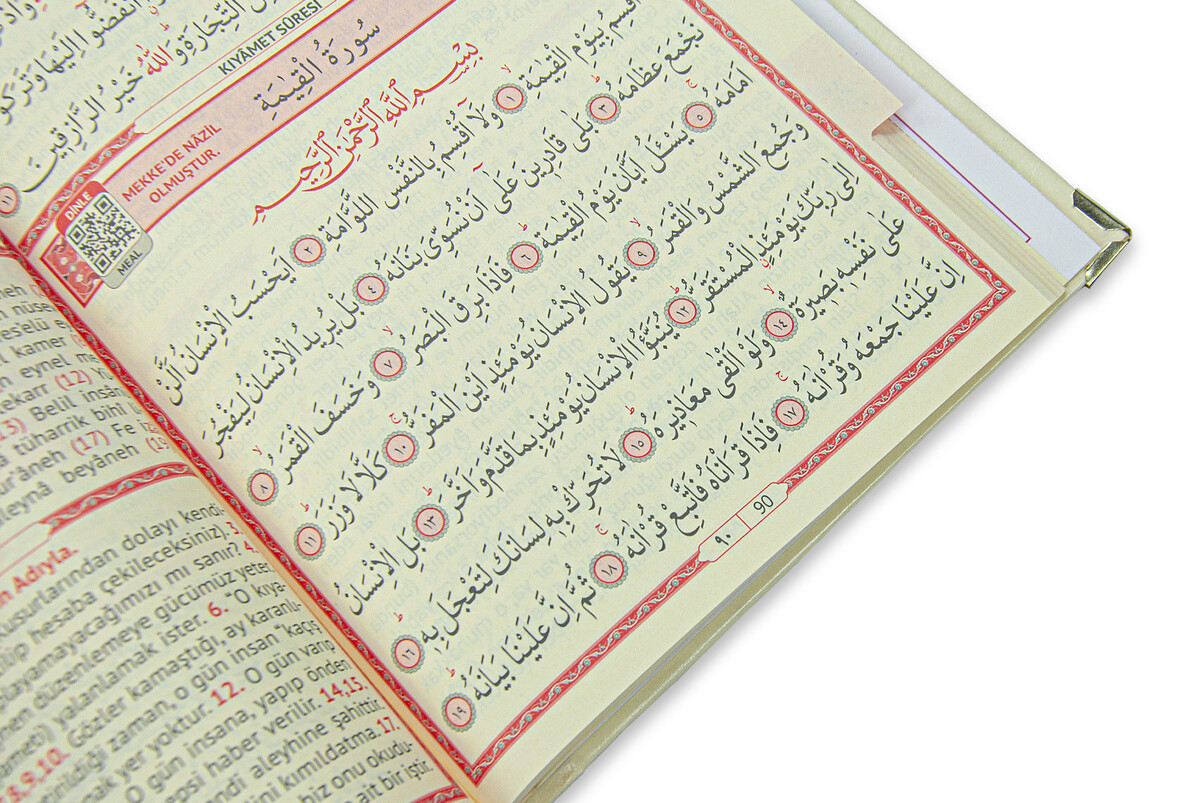 انْفَضُّوا اِلَيْهَا وَتَرَكُو
التِّجَارَةِ وَاللّٰهُ خَيْرُ الرَّازِق۪ينَ ١١
KIYÂMET SÛRESİ
سُورَةُ الْقِيٰمَةِ
MEKKE'DE NÂZİL
OLMUŞTUR.
DİNLE
MEAL
بِسْمِ اللّٰهِ الرَّحْمٰنِ الرَّح۪يمِ
اُقْسِمُ بِيَوْمِ الْقِيٰمَةِۙ ١ وَلَٓا اُقْسِمُ بِالنَّفْسِ اللَّوَّامَةِ ٢ اَيَحْسَبُ الْاِنْسَانُ اَلَّنْ
نَجْمَعَ عِظَامَهُۜ ٣ بَلٰى قَادِر۪ينَ عَلٰٓى اَنْ نُسَوِّيَ بَنَانَهُ ٤ بَلْ يُر۪يدُ الْاِنْسَانُ لِيَفْجُرَ
اَمَامَهُۚ ٥ يَسْـَٔلُ اَيَّانَ يَوْمُ الْقِيٰمَةِۜ ٦ فَاِذَا بَرِقَ الْبَصَرُۙ ٧ وَخَسَفَ الْقَمَرُۙ ٨
وَجُمِعَ الشَّمْسُ وَالْقَمَرُۙ ٩ يَقُولُ الْاِنْسَانُ يَوْمَئِذٍ اَيْنَ الْمَفَرُّۚ ١٠ كَلَّا لَا وَزَرَۜ ١١
اِلٰى رَبِّكَ يَوْمَئِذٍۨ الْمُسْتَقَرُّۜ ١٢ يُنَبَّؤُا الْاِنْسَانُ يَوْمَئِذٍ بِمَا قَدَّمَ وَاَخَّرَۜ ١٣ بَلِ الْاِنْسَانُ
عَلٰى نَفْسِه۪ بَص۪يرَةٌۙ ١٤ وَلَوْ اَلْقٰى مَعَاذ۪يرَهُۜ ١٥ لَا تُحَرِّكْ بِه۪ لِسَانَكَ لِتَعْجَلَ بِه۪ۜ ١٦
اِنَّ عَلَيْنَا جَمْعَهُ وَقُرْاٰنَهُۚ ١٧ فَاِذَا قَرَأْنَاهُ فَاتَّبِعْ قُرْاٰنَهُۚ ١٨ ثُمَّ اِنَّ عَلَيْنَا بَيَانَهُۜ ١٩
٩٠ 90
kamer
eynel
ekarr (12)
13) Belil insâ
tüharrik bihî
(17) Fe
leynâ beyâneh
Adıyla.
kusurlarından dolayı kendi-
hesaba çekileceksiniz) 3.
layamayacağımızı mı sanır? 4.
düzenlemeye gücümüz yeter.
yalanlamak ister. 6. "O kıya-
8,9,10. Gözler kamaştığı, ay karanlı-
tirildiği zaman, o gün insan "kaçış
yer yoktur. 12. O gün varıp
O gün insana, yapıp önden
epsi haber verilir. 14,15.
endi aleyhine şahittir.
ini kımıldatma. 17.
biz onu okudu-
ait bir iştir.